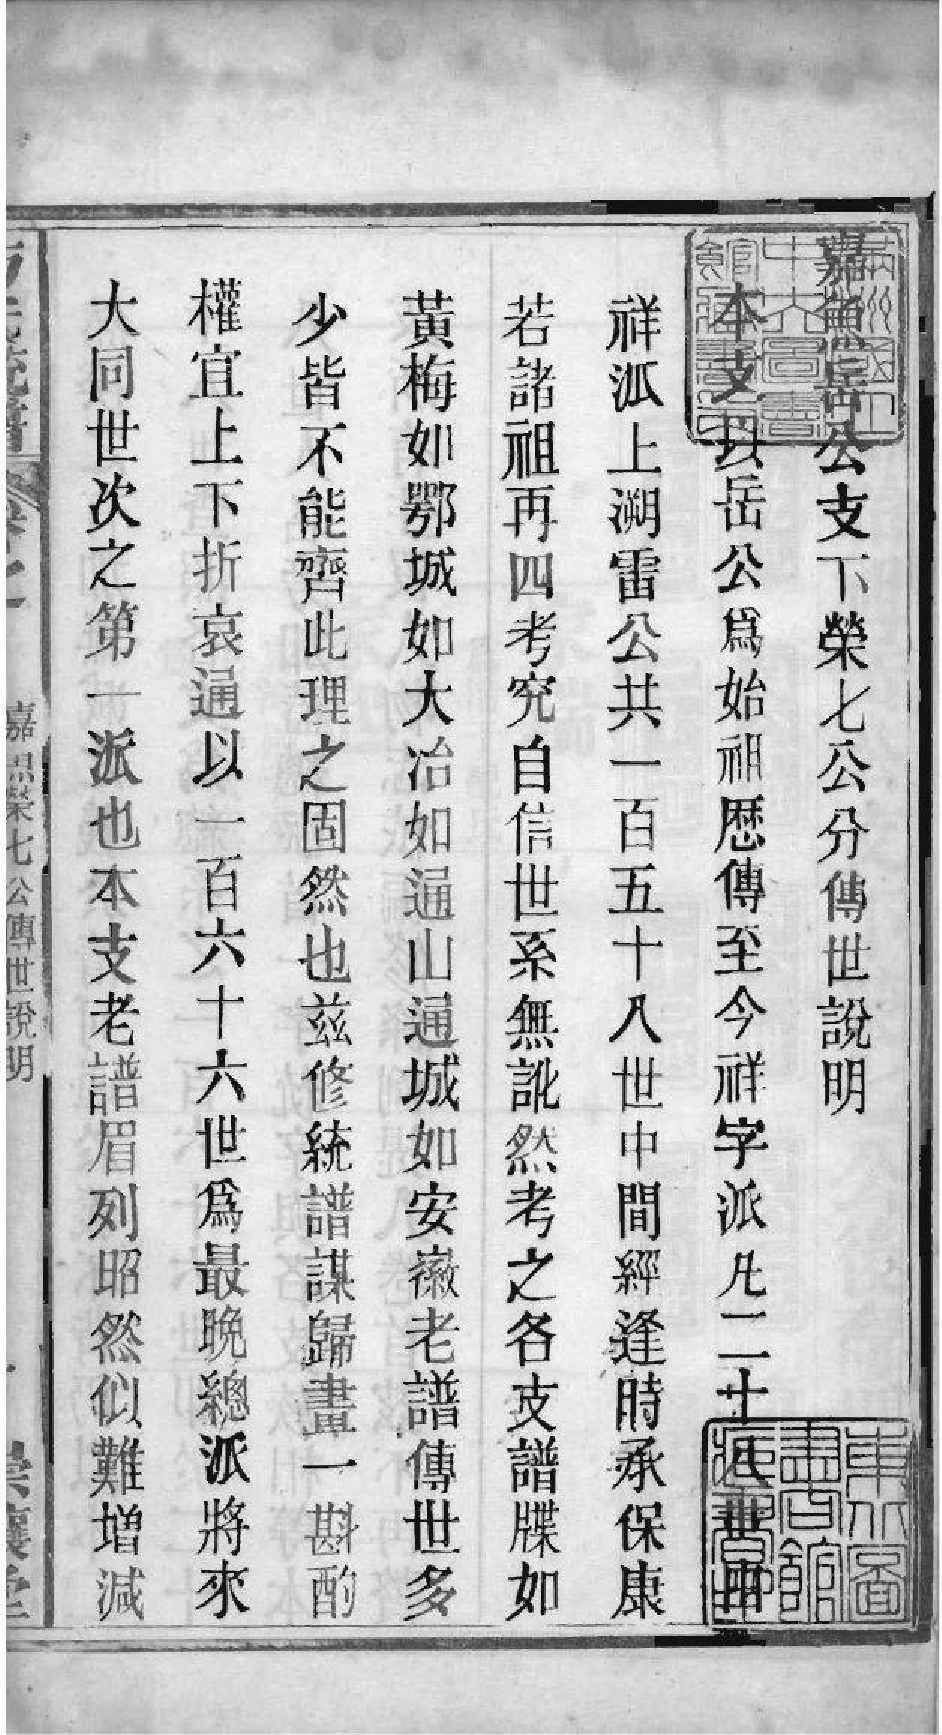 嘉魚岳公支下榮七公分傳世說明
本支以岳公爲始祖歷傳至今祥字派凡二十八世由
祥派上溯雷公共一百五十八世中間經逢時承保康
若諸祖再四考究自信世系無訛然考之各支譜牒如
黃梅如鄂城如大冶如通山通城如安徽老譜傳世多
少皆不能齊此理之固然也兹修統譜謀歸畫一斟酌
權宜上下折衷通以一百六十六世爲最晚總派將來
大同世次之第一派也本支老譜眉列昭然似難增減
方氏統譜
卷之
嘉魚榮七公傳世說明